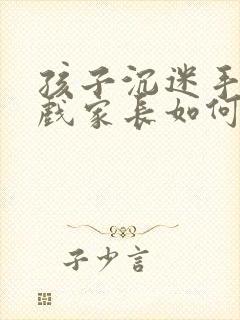 孩子沉迷手
戏家长如何
子少言